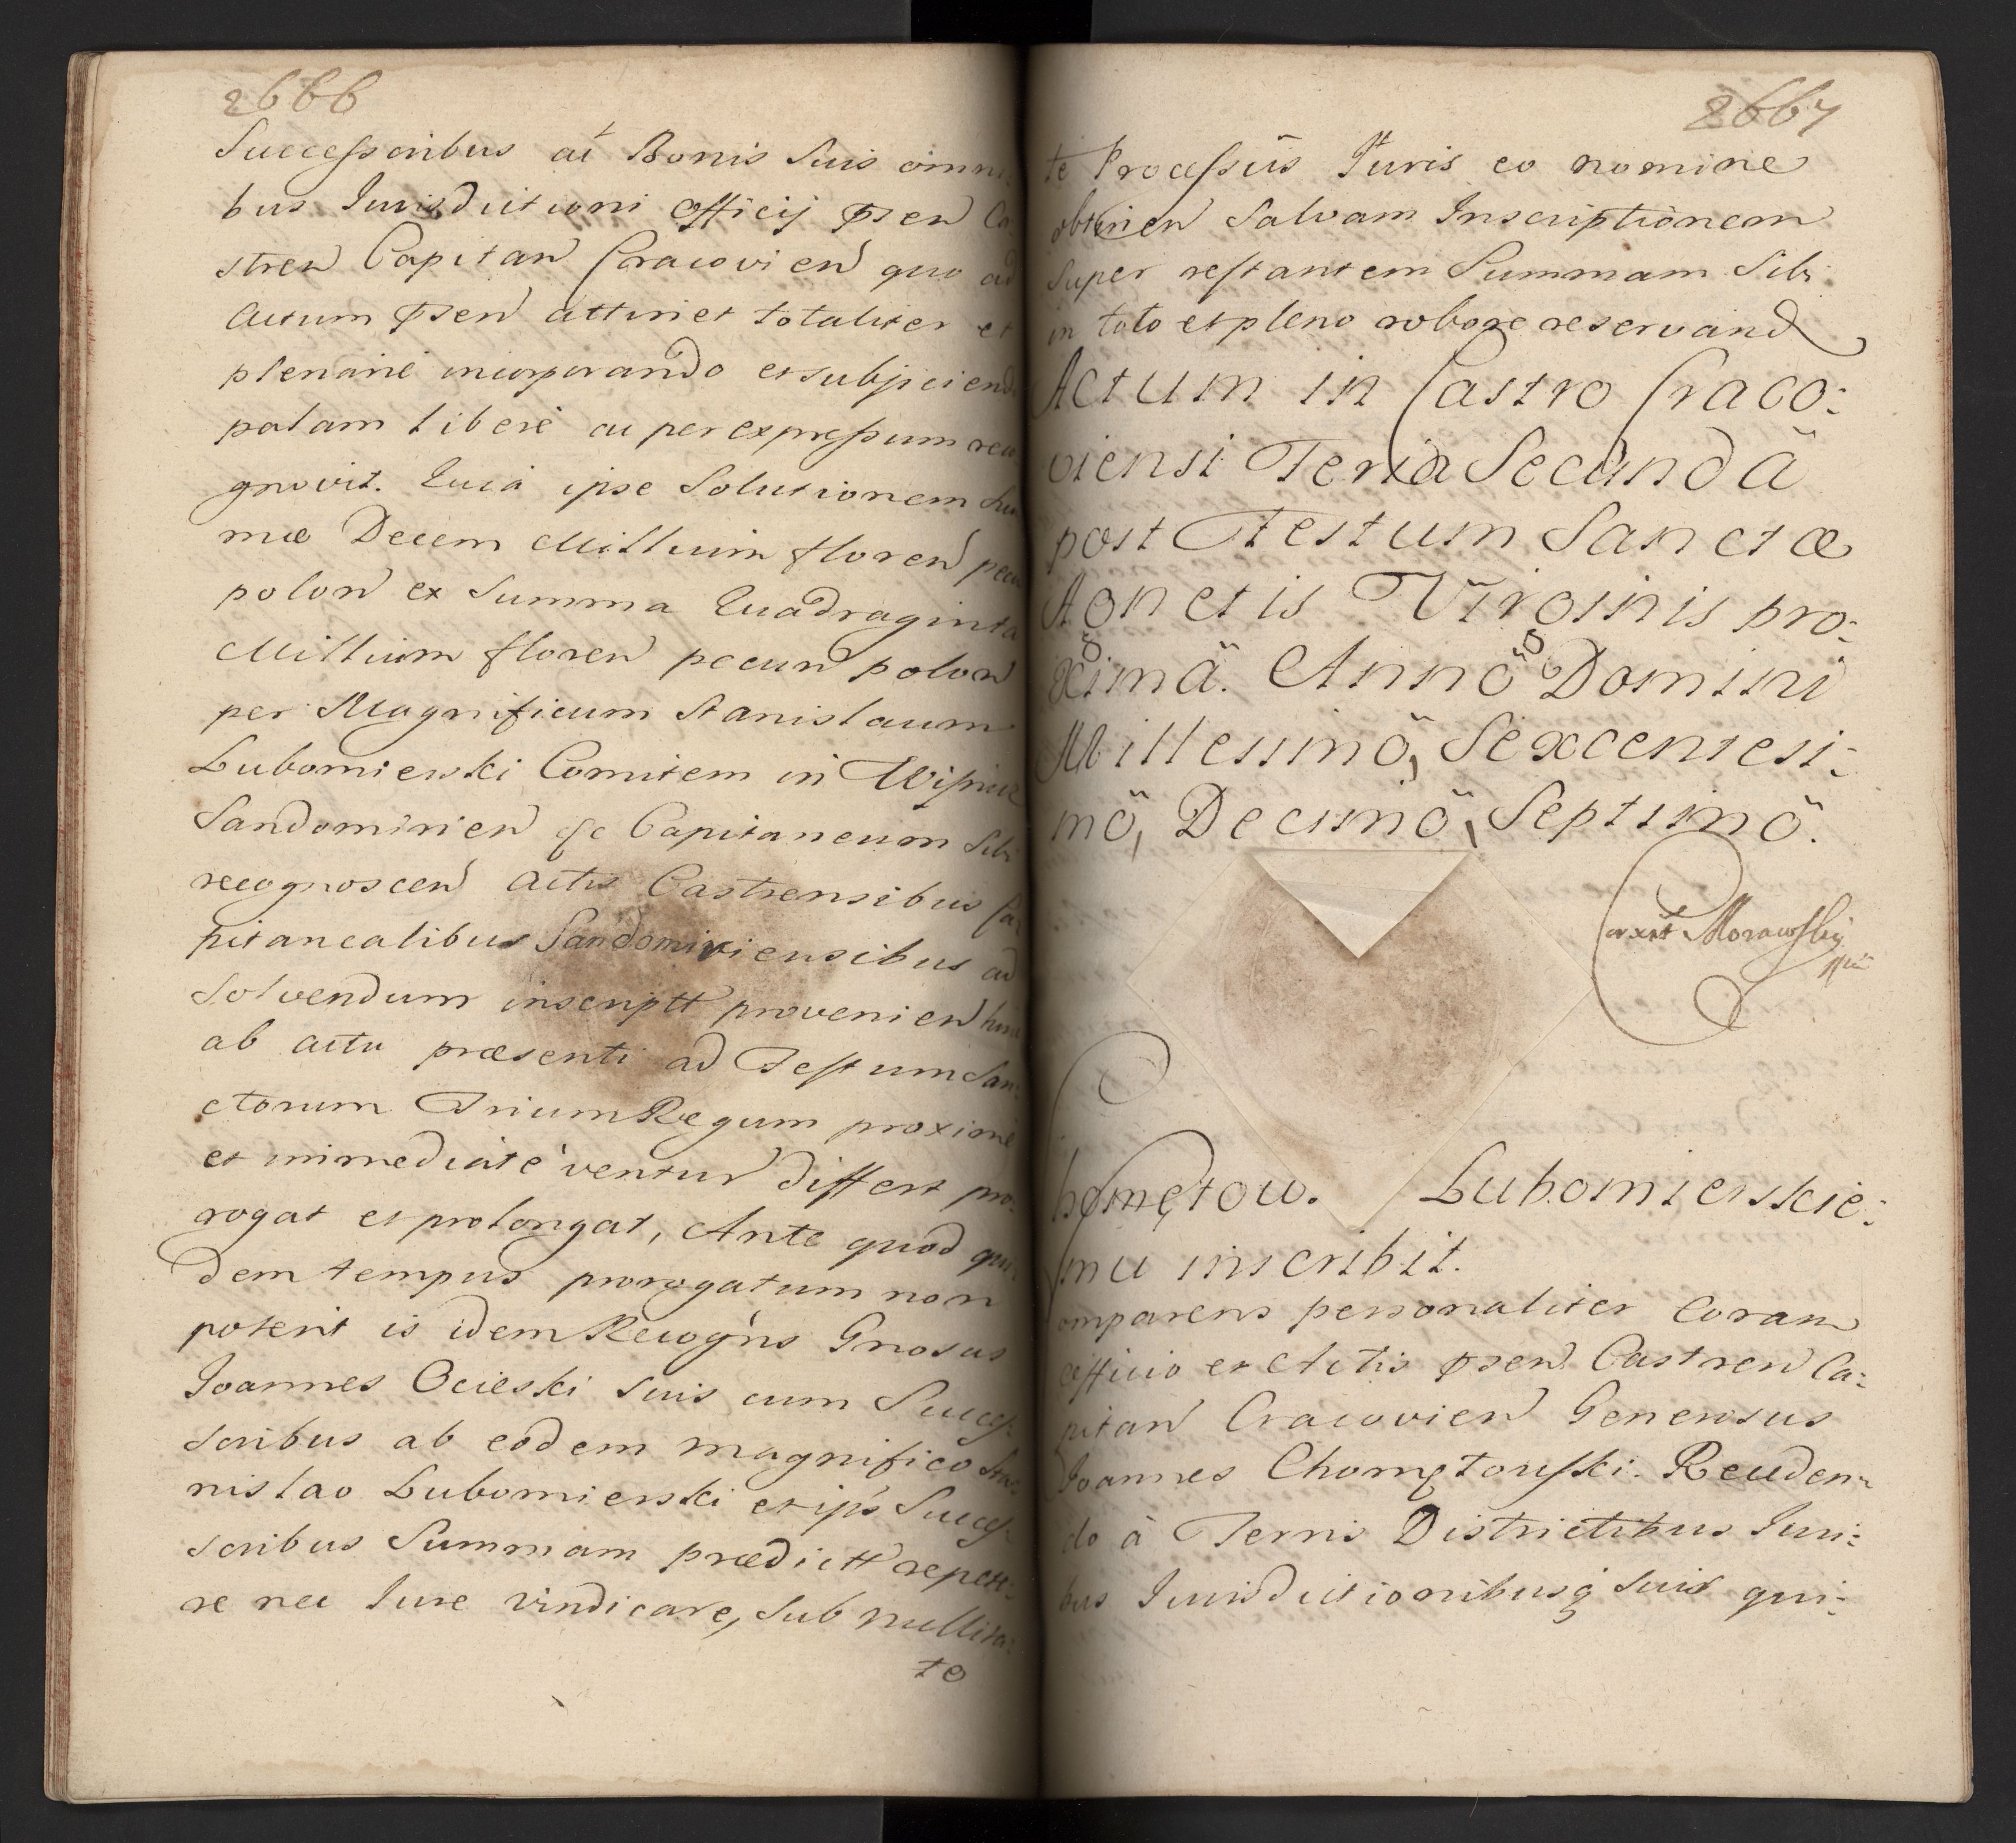 2666
Successoribus ac Bonis Suis omni:
bus Jurisdictioni Officij pñsen Ca
stren Capitan Cracovien quo ad
Actum pñsen attinet totaliter et
plenarié incorporando et subjiciendo
palam liberé ac per expressum reco
gnovit. Quia ipse Solutionem Sum
mæ Decem Millium floren pecun
polon ex Summa Quadraginta
Millium floren pecun polon
per Magnificum Stanislaum
Lubomierski Comitem in Wisnicz
Sandomirien &c Capitaneum Sibi
recognoscen Actis Castrensibus Ca
pitanealibus Sandomiriensibus ad
Solvendum inscriptt provenien hinc
ab actu præsenti ad Festum San:
ctorum Trium Regum proximé
et immediaté ventur differt pro:
rogat et prolongat, Ante quod qui
dem tempus prorogatum non
poterit is idem Recogñs Gnosus
Joannes Ocieski Suis cum Succes:
soribus ab eodem Magnifico Sta:
nislao Lubomierski et ips Succes:
soribus Summam prædictt repete:
re nec Jure vindicare, Sub nullita:
te
2667
te Processûs Juris eo nomine
obtinen Salvam Inscriptionem
Super restantem Summam Sibi
in toto et pleno robore reservand
Actum in Castro Craco:
viensi Feria Secundâ
post Festum Sanctæ
Agnetis Virginis pro:
ximâ. Annô Domini
Millesimô, Sexcentesi:
mô, Decimô, Septimô.
Corrxit Morawsky
mp
homętow. Lubomierskie:
mu inscribit.
omparens personaliter Coram
Officio et Actis pñsen Castren Ca:
pitan Cracovien Generosus
Joannes Chomętowski. Receden:
do à Terris Districtibus Juri:
bus Jurisdictionibusq Suis qui: